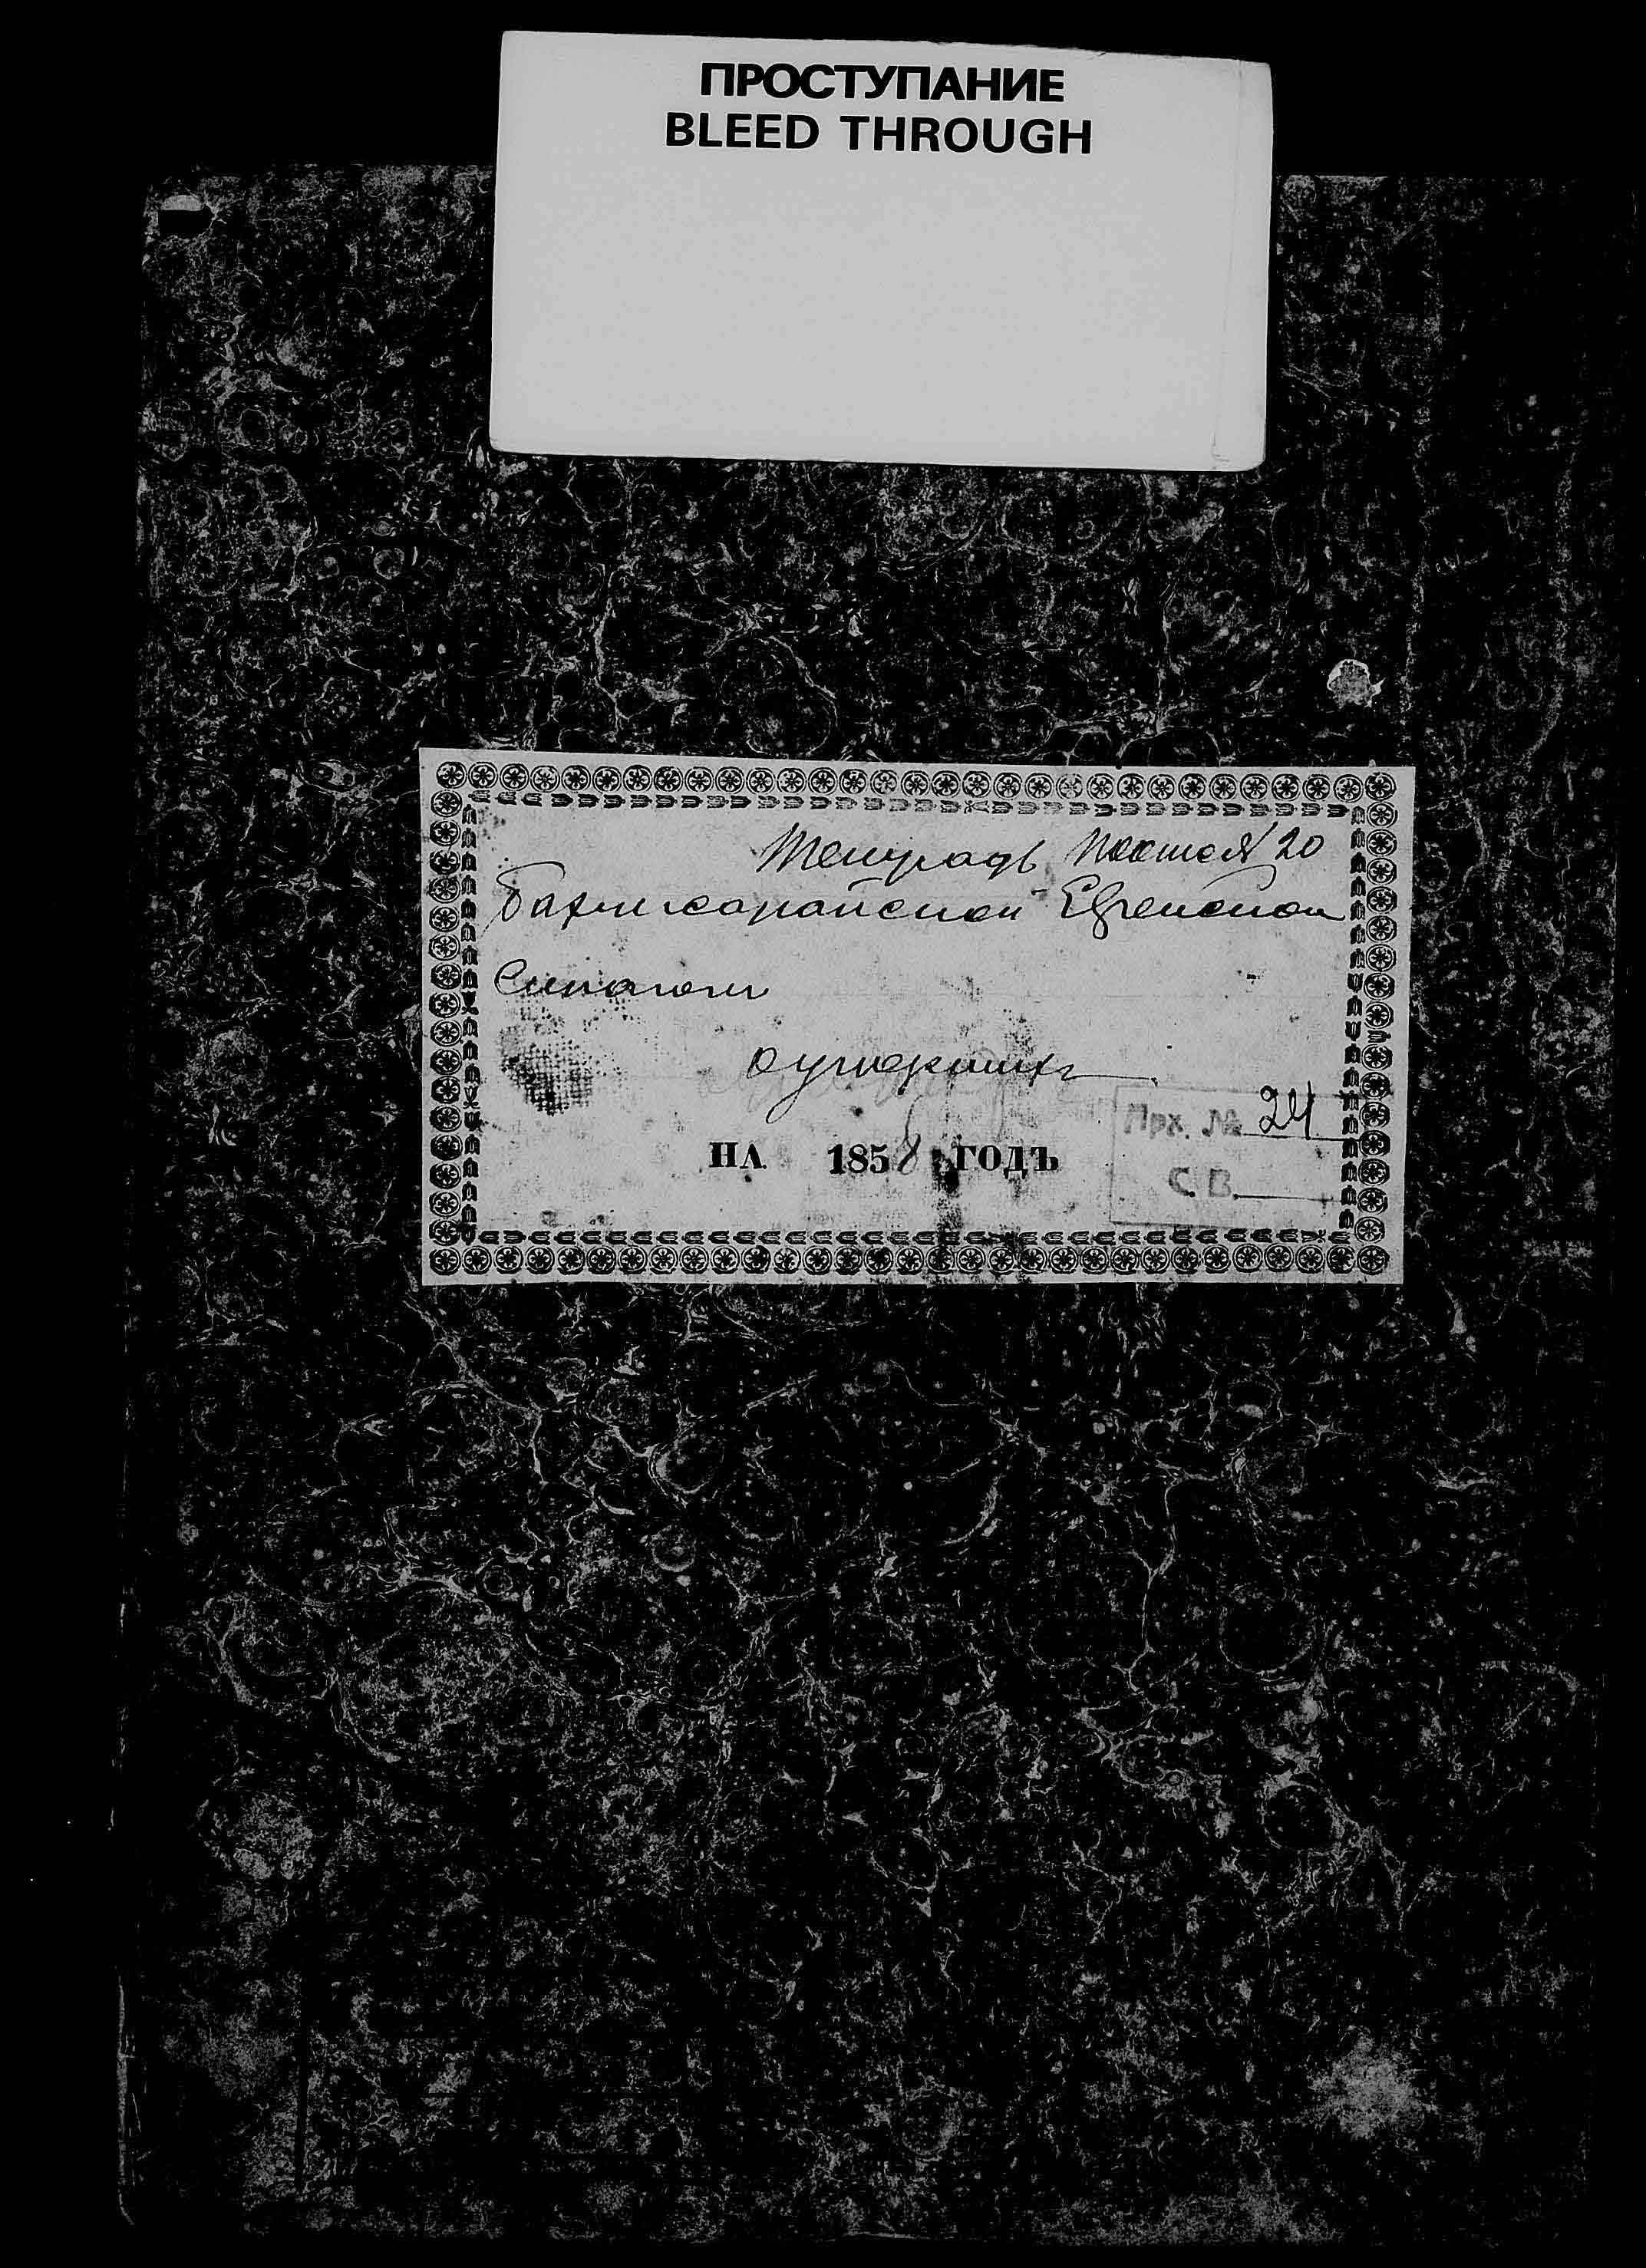 ПРОСТУПАНИЕ
BLEED THROUGH
Тетрадь № 20
Бахчисарайской Еврейской
Синагоги
о умершихъ
НА 1858 ГОДЪ
Прх. № 24
С. В.